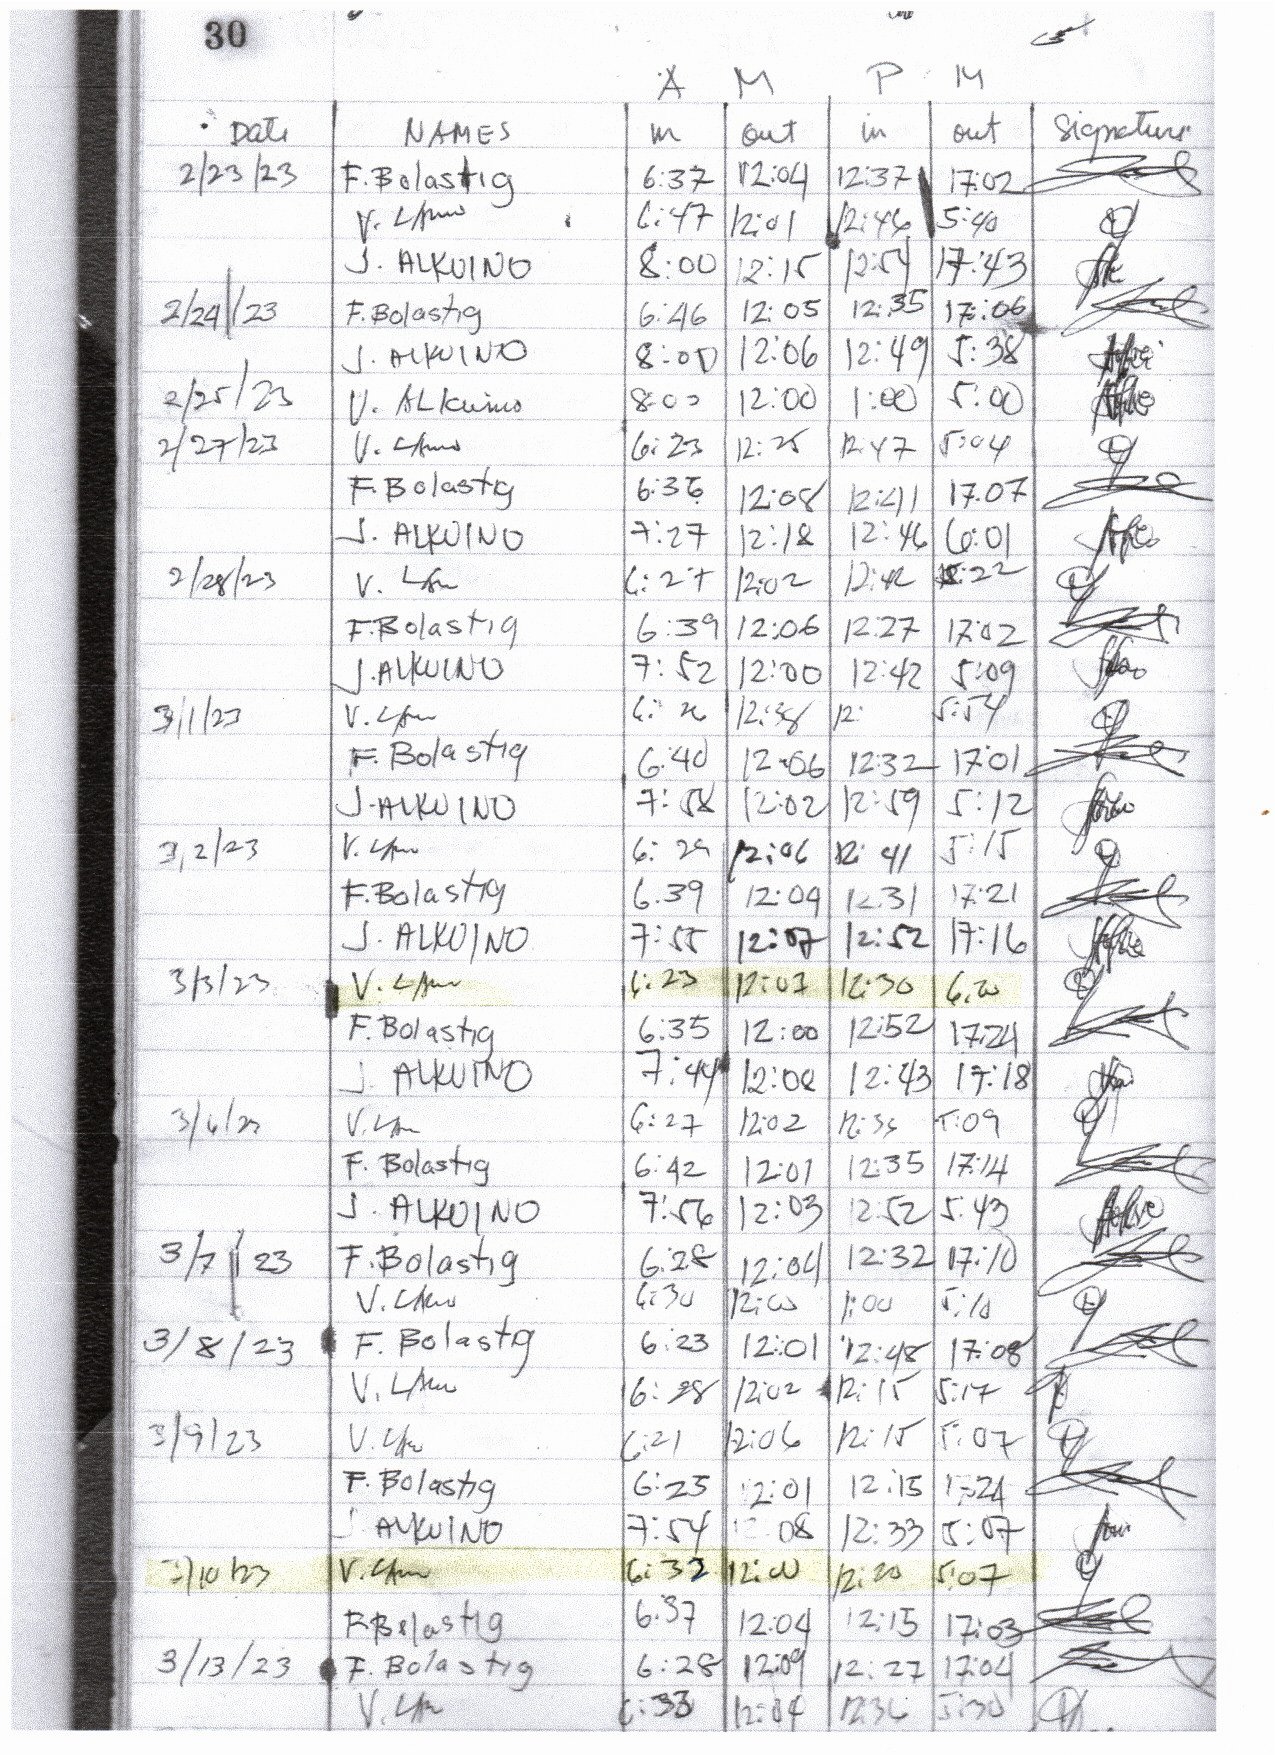 30
A M P M
Date NAMES in out in out Signature
2/23/23 F. Bolastig 6:37 12:04 12:37 17:02
V. 6:47 12:01 12:46 5:40
J. ALKUINO 8:00 12:15 12:54 17:43
2/24/23 F. Bolastig 6:46 12:05 12:35 17:06
J. ALKUINO 8:00 12:06 12:49 5:38
2/25/23 V. ALKuino 8:00 12:00 1:00 5:00
2/27/23 V. 6:23 12:25 12:47 5:04
F. Bolastig 12:08 12:41 17.07
J. ALKUINO 7:27 12:18 12:46 6:01
2/28/23 V. 6:27 12:02 12:42
F. Bolastig 6:39 12:06 12:27 17:02
J. ALKUINO 7:52 12:00 12:42 5:09
3/1/23 V. 6:26 12:38 12: 5:54
F. Bolastig 6:40 12:06 12:32 17:01
J. ALKUINO 7:58 12:02 12:59 5:12
3/2/23 V. 6:29 12:06 12:41 5:15
F. Bolastig 6.39 12:09 12:31 17:21
J. ALKUINO 7:55 12:07 12:52 17:16
3/3/23 V. 6:23 12:07 12:30
F. Bolastig 6:35 12:00 12:52 17:24
J. ALKUINO 7:44 12:08 12:43 17:18
3/6/23 V. 6:27 12:02 5:09
F. Bolastig 6:42 12:01 12:35 17:14
J. ALKUINO 7:56 12:03 12:52 5:43
3/7/23 F. Bolastig 6:28 12:04 12:32 17:10
V. 6:30 12:00 1:00 5:10
3/8/23 F. Bolastig 6:23 12:01 12:48 17:08
V. 6:28 12:02 12:15 5:17
3/9/23 V. 6:21 12:06 12:15 5:07
F. Bolastig 6:25 12:01 12:15 17:24
J. ALKUINO 7:54 12:08 12:33 5:07
3/10/23 V. 6:32 12:00 12:20 5:07
F. Bolastig 6:37 12:04 12:15 17:03
3/13/23 F. Bolastig 6:28 12:09 12:27 17:04
V. 6:33 12:04 12:36 5:30